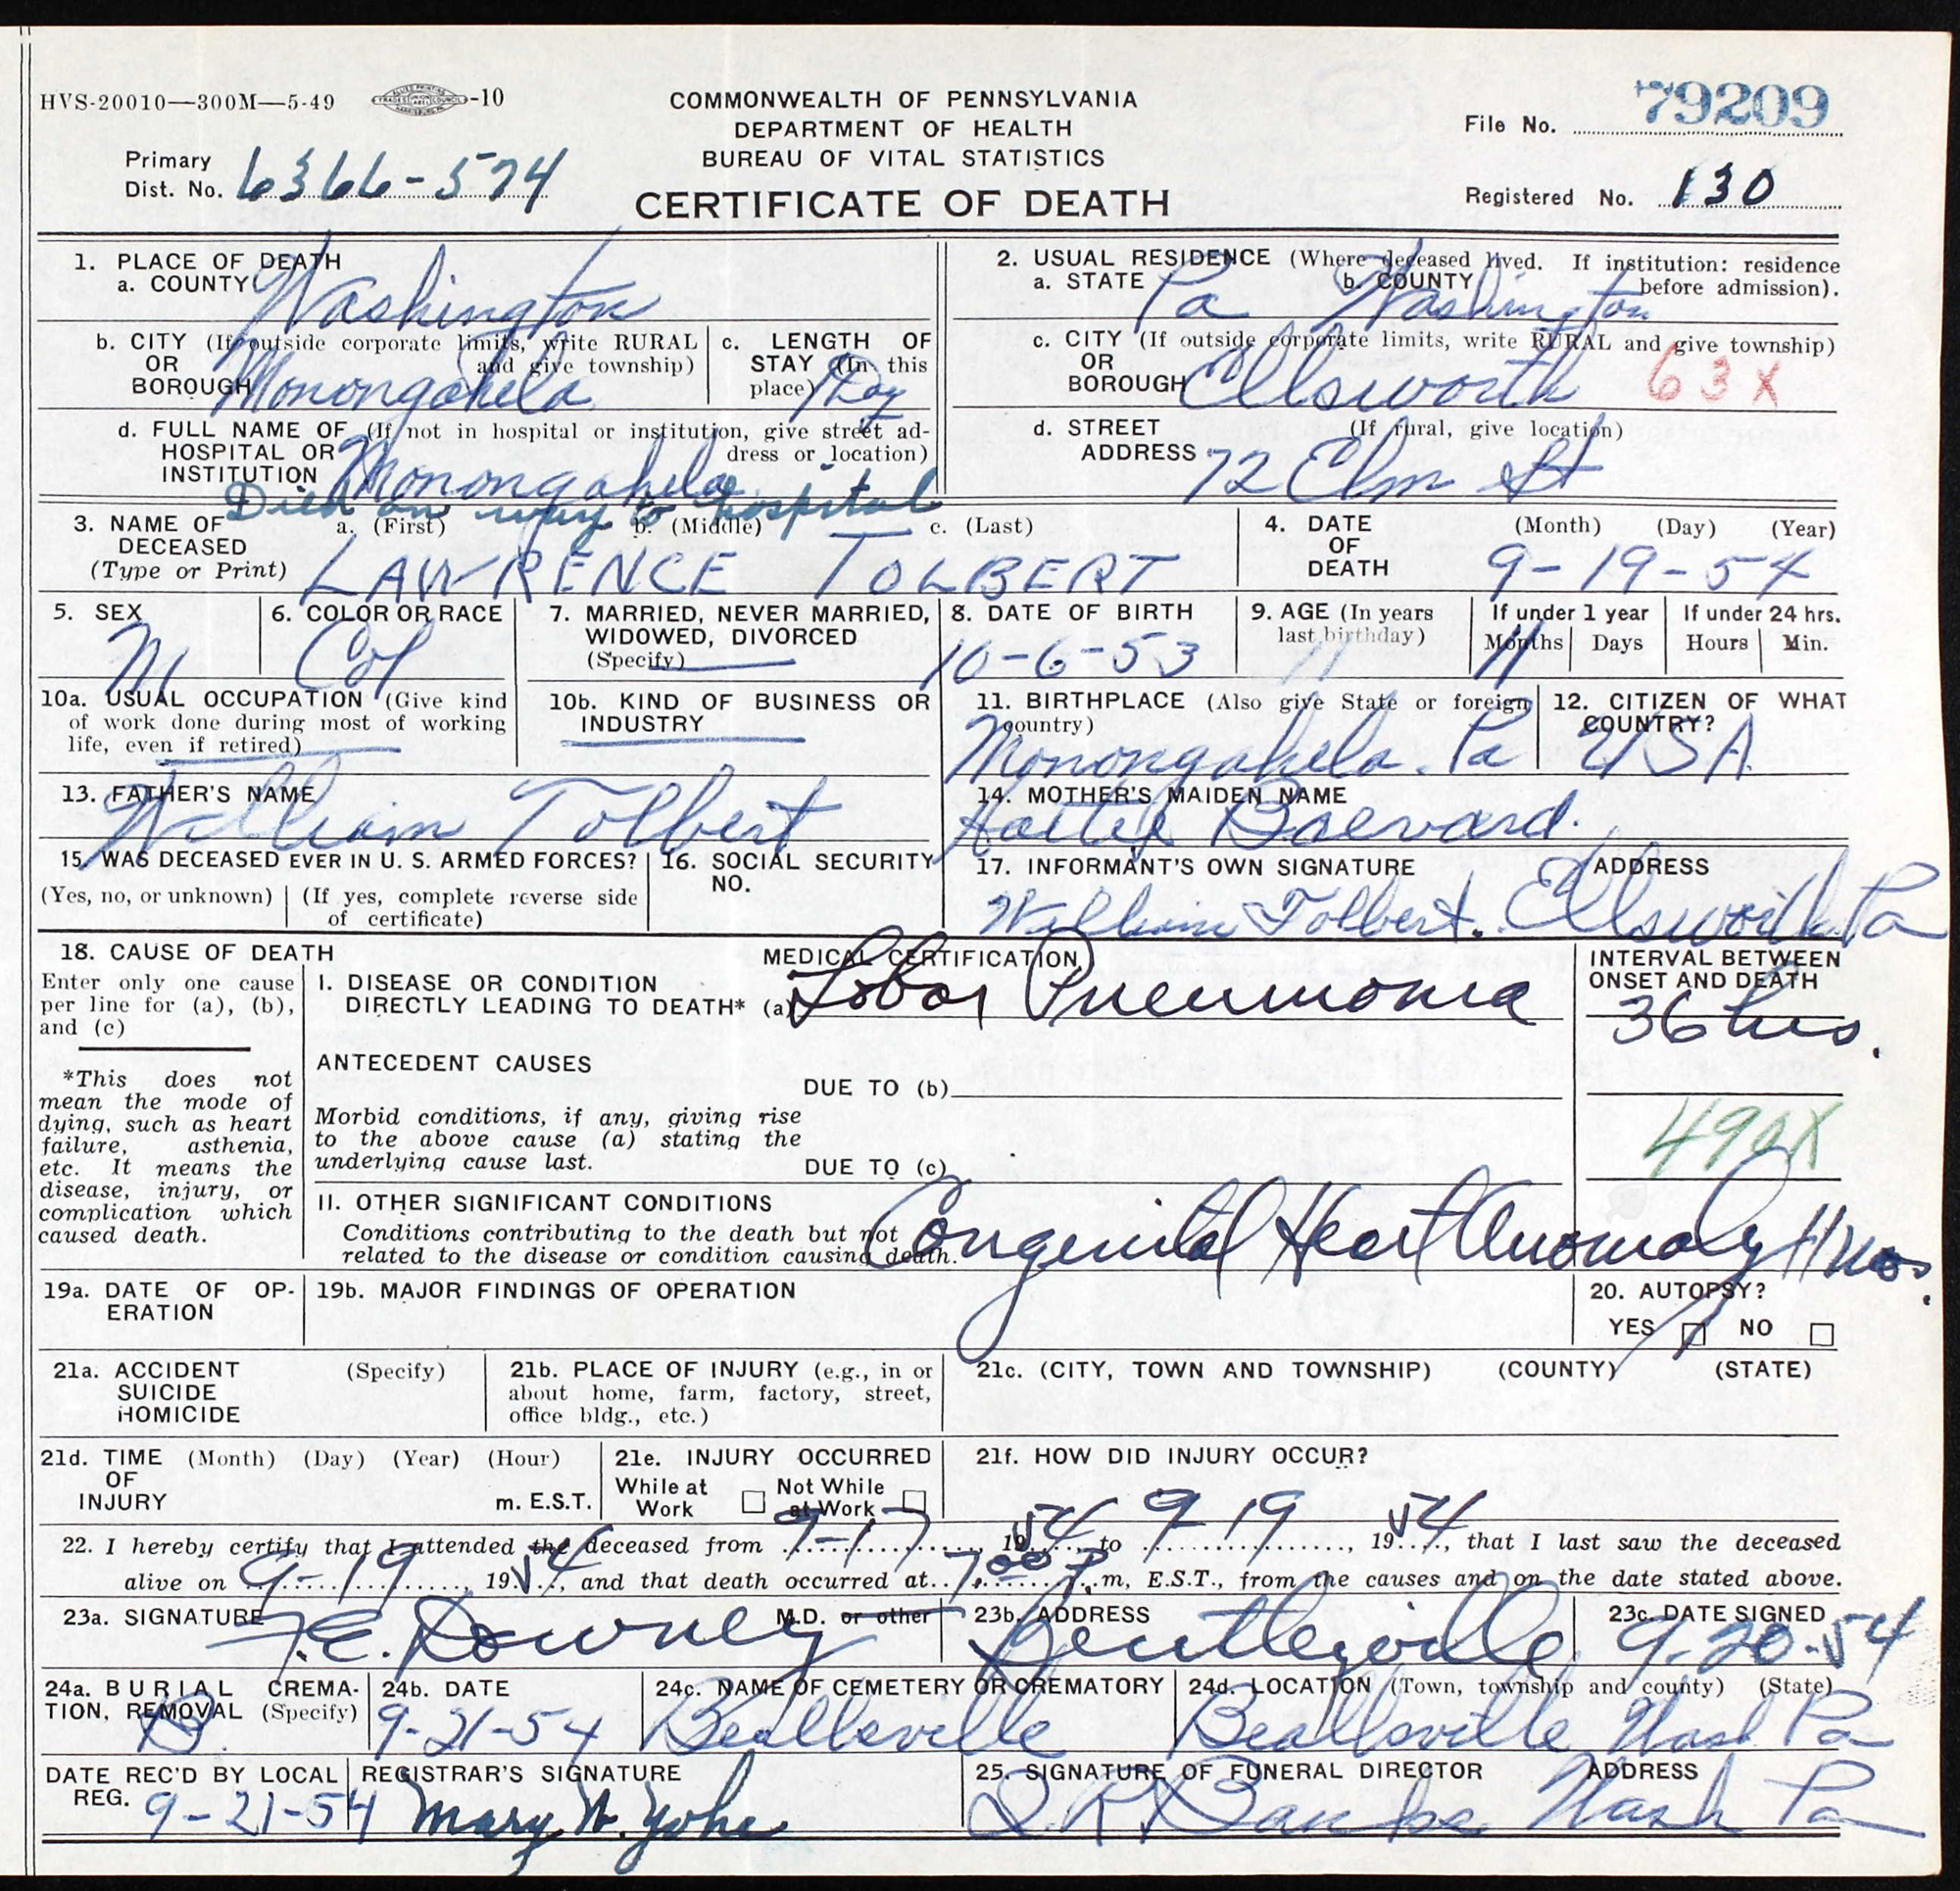 HVS-20010—300M—5-49 -10
COMMONWEALTH OF PENNSYLVANIA
DEPARTMENT OF HEALTH
BUREAU OF VITAL STATISTICS
CERTIFICATE OF DEATH
File No. 79209
Primary
Dist. No. 6366-574
Registered No. 130
1. PLACE OF DEATH
a. COUNTY Washington
b. CITY (If outside corporate limits, write RURAL
OR and give township)
BOROUGH Monongahela
c. LENGTH OF
STAY (In this
place) Day
d. FULL NAME OF (If not in hospital or institution, give street ad-
HOSPITAL OR dress or location)
INSTITUTION Monongahela
Died on way to hospital
2. USUAL RESIDENCE (Where deceased lived. If institution: residence
before admission).
a. STATE Pa b. COUNTY Washington
c. CITY (If outside corporate limits, write RURAL and give township)
OR
BOROUGH Ellsworth 63X
d. STREET (If rural, give location)
ADDRESS 72 Elm St
3. NAME OF a. (First) b. (Middle) c. (Last)
DECEASED
(Type or Print) LAWRENCE TOLBERT
4. DATE (Month) (Day) (Year)
OF
DEATH 9-19-54
5. SEX M
6. COLOR OR RACE Col
7. MARRIED, NEVER MARRIED,
WIDOWED, DIVORCED
(Specify)
8. DATE OF BIRTH
10-6-53
9. AGE (In years
last birthday) 11
If under 1 year
Months Days
11
If under 24 hrs.
Hours Min.
10a. USUAL OCCUPATION (Give kind
of work done during most of working
life, even if retired)
10b. KIND OF BUSINESS OR
INDUSTRY
11. BIRTHPLACE (Also give State or foreign
country)
Monongahela. Pa
12. CITIZEN OF WHAT
COUNTRY?
USA
13. FATHER'S NAME
William Tolbert
14. MOTHER'S MAIDEN NAME
15. WAS DECEASED EVER IN U. S. ARMED FORCES?
(Yes, no, or unknown) (If yes, complete reverse side
of certificate)
16. SOCIAL SECURITY
NO.
17. INFORMANT'S OWN SIGNATURE ADDRESS
William Tolbert. Ellsworth Pa
18. CAUSE OF DEATH
Enter only one cause
per line for (a), (b),
and (c)
*This does not
mean the mode of
dying, such as heart
failure, asthenia,
etc. It means the
disease, injury, or
complication which
caused death.
MEDICAL CERTIFICATION
I. DISEASE OR CONDITION
DIRECTLY LEADING TO DEATH* (a) Lobar Pneumonia
ANTECEDENT CAUSES
DUE TO (b)
Morbid conditions, if any, giving rise
to the above cause (a) stating the
underlying cause last.
DUE TO (c)
II. OTHER SIGNIFICANT CONDITIONS
Conditions contributing to the death but not
related to the disease or condition causing death.
Congenital Heart Anomaly 11 mos.
INTERVAL BETWEEN
ONSET AND DEATH
36 hrs.
490X
19a. DATE OF OP-
ERATION
19b. MAJOR FINDINGS OF OPERATION
20. AUTOPSY?
YES NO
21a. ACCIDENT (Specify)
SUICIDE
HOMICIDE
21b. PLACE OF INJURY (e.g., in or
about home, farm, factory, street,
office bldg., etc.)
21c. (CITY, TOWN AND TOWNSHIP) (COUNTY) (STATE)
21d. TIME (Month) (Day) (Year) (Hour)
OF
INJURY m. E.S.T.
21e. INJURY OCCURRED
While at Not While
Work at Work
21f. HOW DID INJURY OCCUR?
22. I hereby certify that I attended the deceased from 9-17, 1954, to 9-19, 1954, that I last saw the deceased
alive on 9-19, 1954, and that death occurred at 7:00 P.m, E.S.T., from the causes and on the date stated above.
23a. SIGNATURE M.D. or other
F.E. Downey
23b. ADDRESS
Bentleyville
23c. DATE SIGNED
9-20-54
24a. BURIAL CREMA-
TION, REMOVAL (Specify)
B
24b. DATE
9-21-54
24c. NAME OF CEMETERY OR CREMATORY
Beallsville
24d. LOCATION (Town, township and county) (State)
Beallsville Wash Pa
DATE REC'D BY LOCAL
REG. 9-21-54
REGISTRAR'S SIGNATURE
Mary N. Yohe
25. SIGNATURE OF FUNERAL DIRECTOR ADDRESS
Wash Pa